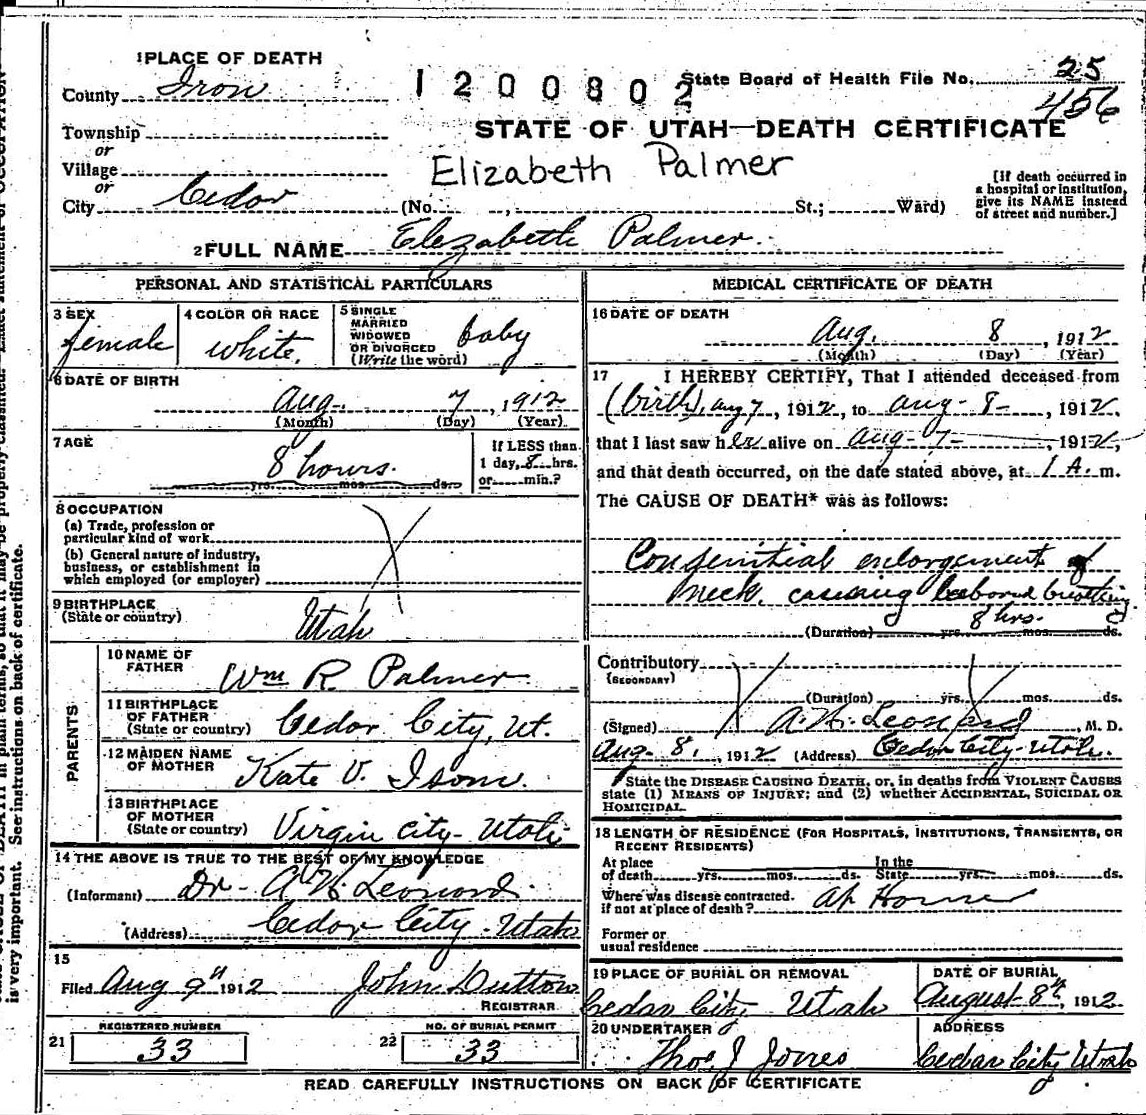 1 PLACE OF DEATH
County Iron
1200802
State Board of Health File No. 25
456
Township
or
Village
or
City Cedar
STATE OF UTAH—DEATH CERTIFICATE
Elizabeth Palmer
(No. , St.; Ward)
[If death occurred in
a hospital or institution,
give its NAME instead
of street and number.]
2 FULL NAME Elizabeth Palmer.
PERSONAL AND STATISTICAL PARTICULARS
3 SEX
female
4 COLOR OR RACE
white.
5 SINGLE
MARRIED
WIDOWED
OR DIVORCED
(Write the word)
baby
6 DATE OF BIRTH
Aug. 7, 1912
(Month) (Day) (Year)
7 AGE
8 hours.
yrs. mos. ds.
If LESS than
1 day, 8 hrs.
or min.?
8 OCCUPATION
(a) Trade, profession or
particular kind of work
(b) General nature of industry,
business, or establishment in
which employed (or employer)
9 BIRTHPLACE
(State or country)
Utah
PARENTS
10 NAME OF
FATHER
Wm R. Palmer
11 BIRTHPLACE
OF FATHER
(State or country)
Cedar City, Ut.
12 MAIDEN NAME
OF MOTHER
Kate V. Isom.
13 BIRTHPLACE
OF MOTHER
(State or country)
Virgin City - Utah
14 THE ABOVE IS TRUE TO THE BEST OF MY KNOWLEDGE
(Informant) Dr - A. N. Leonard.
(Address) Cedar City - Utah
15
Filed Aug 9th 1912 John Dutton
REGISTRAR
REGISTERED NUMBER
21 33
NO. OF BURIAL PERMIT
22 33
MEDICAL CERTIFICATE OF DEATH
16 DATE OF DEATH
Aug. 8, 1912
(Month) (Day) (Year)
17 I HEREBY CERTIFY, That I attended deceased from
(birth), aug 7, 1912, to aug - 8 -, 1912,
that I last saw her alive on aug - 7 -, 1912,
and that death occurred, on the date stated above, at 1 A. m.
The CAUSE OF DEATH* was as follows:
Congenitial enlargement of
neck, causing labored breathing
8 hrs.
(Duration) yrs. mos. ds.
Contributory
(SECONDARY)
(Duration) yrs. mos. ds.
(Signed) A. N. Leonard, M. D.
Aug. 8, 1912 (Address) Cedar City - Utah.
*State the DISEASE CAUSING DEATH, or, in deaths from VIOLENT CAUSES
state (1) MEANS OF INJURY; and (2) whether ACCIDENTAL, SUICIDAL OR
HOMICIDAL.
18 LENGTH OF RESIDENCE (FOR HOSPITALS, INSTITUTIONS, TRANSIENTS, OR
RECENT RESIDENTS)
At place
of death yrs. mos. ds.
In the
State yrs. mos. ds.
Where was disease contracted.
if not at place of death? At Home
Former or
usual residence
19 PLACE OF BURIAL OR REMOVAL
Cedar City, Utah
DATE OF BURIAL
August 8th, 1912
20 UNDERTAKER
Thos J Jones
ADDRESS
Cedar City Utah
READ CAREFULLY INSTRUCTIONS ON BACK OF CERTIFICATE
is very important. See instructions on back of certificate.